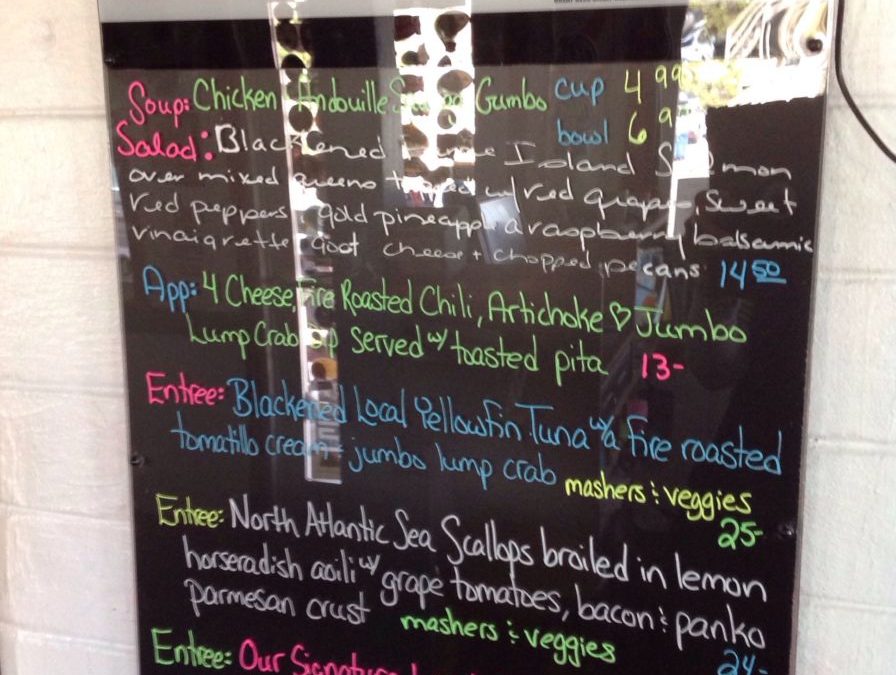 Soup: Chicken Andouille Gumbo cup 4 99
bowl 6 9
Salad: Blackened Island Salmon
over mixed greens topped w/ red grapes, sweet
red peppers, gold pineapple a raspberry balsamic
vinaigrette goat cheese + chopped pecans 14 50
App: 4 Cheese, Fire Roasted Chili, Artichoke ♡ Jumbo
Lump Crab Dip Served w/ toasted pita 13-
Entree: Blackened Local Yellowfin Tuna w/a fire roasted
tomatillo cream + jumbo lump crab
mashers & veggies
25-
Entree: North Atlantic Sea Scallops broiled in lemon
horseradish aoili w/ grape tomatoes, bacon & panko
parmesan crust mashers & veggies
24-
Entree: Our Signature